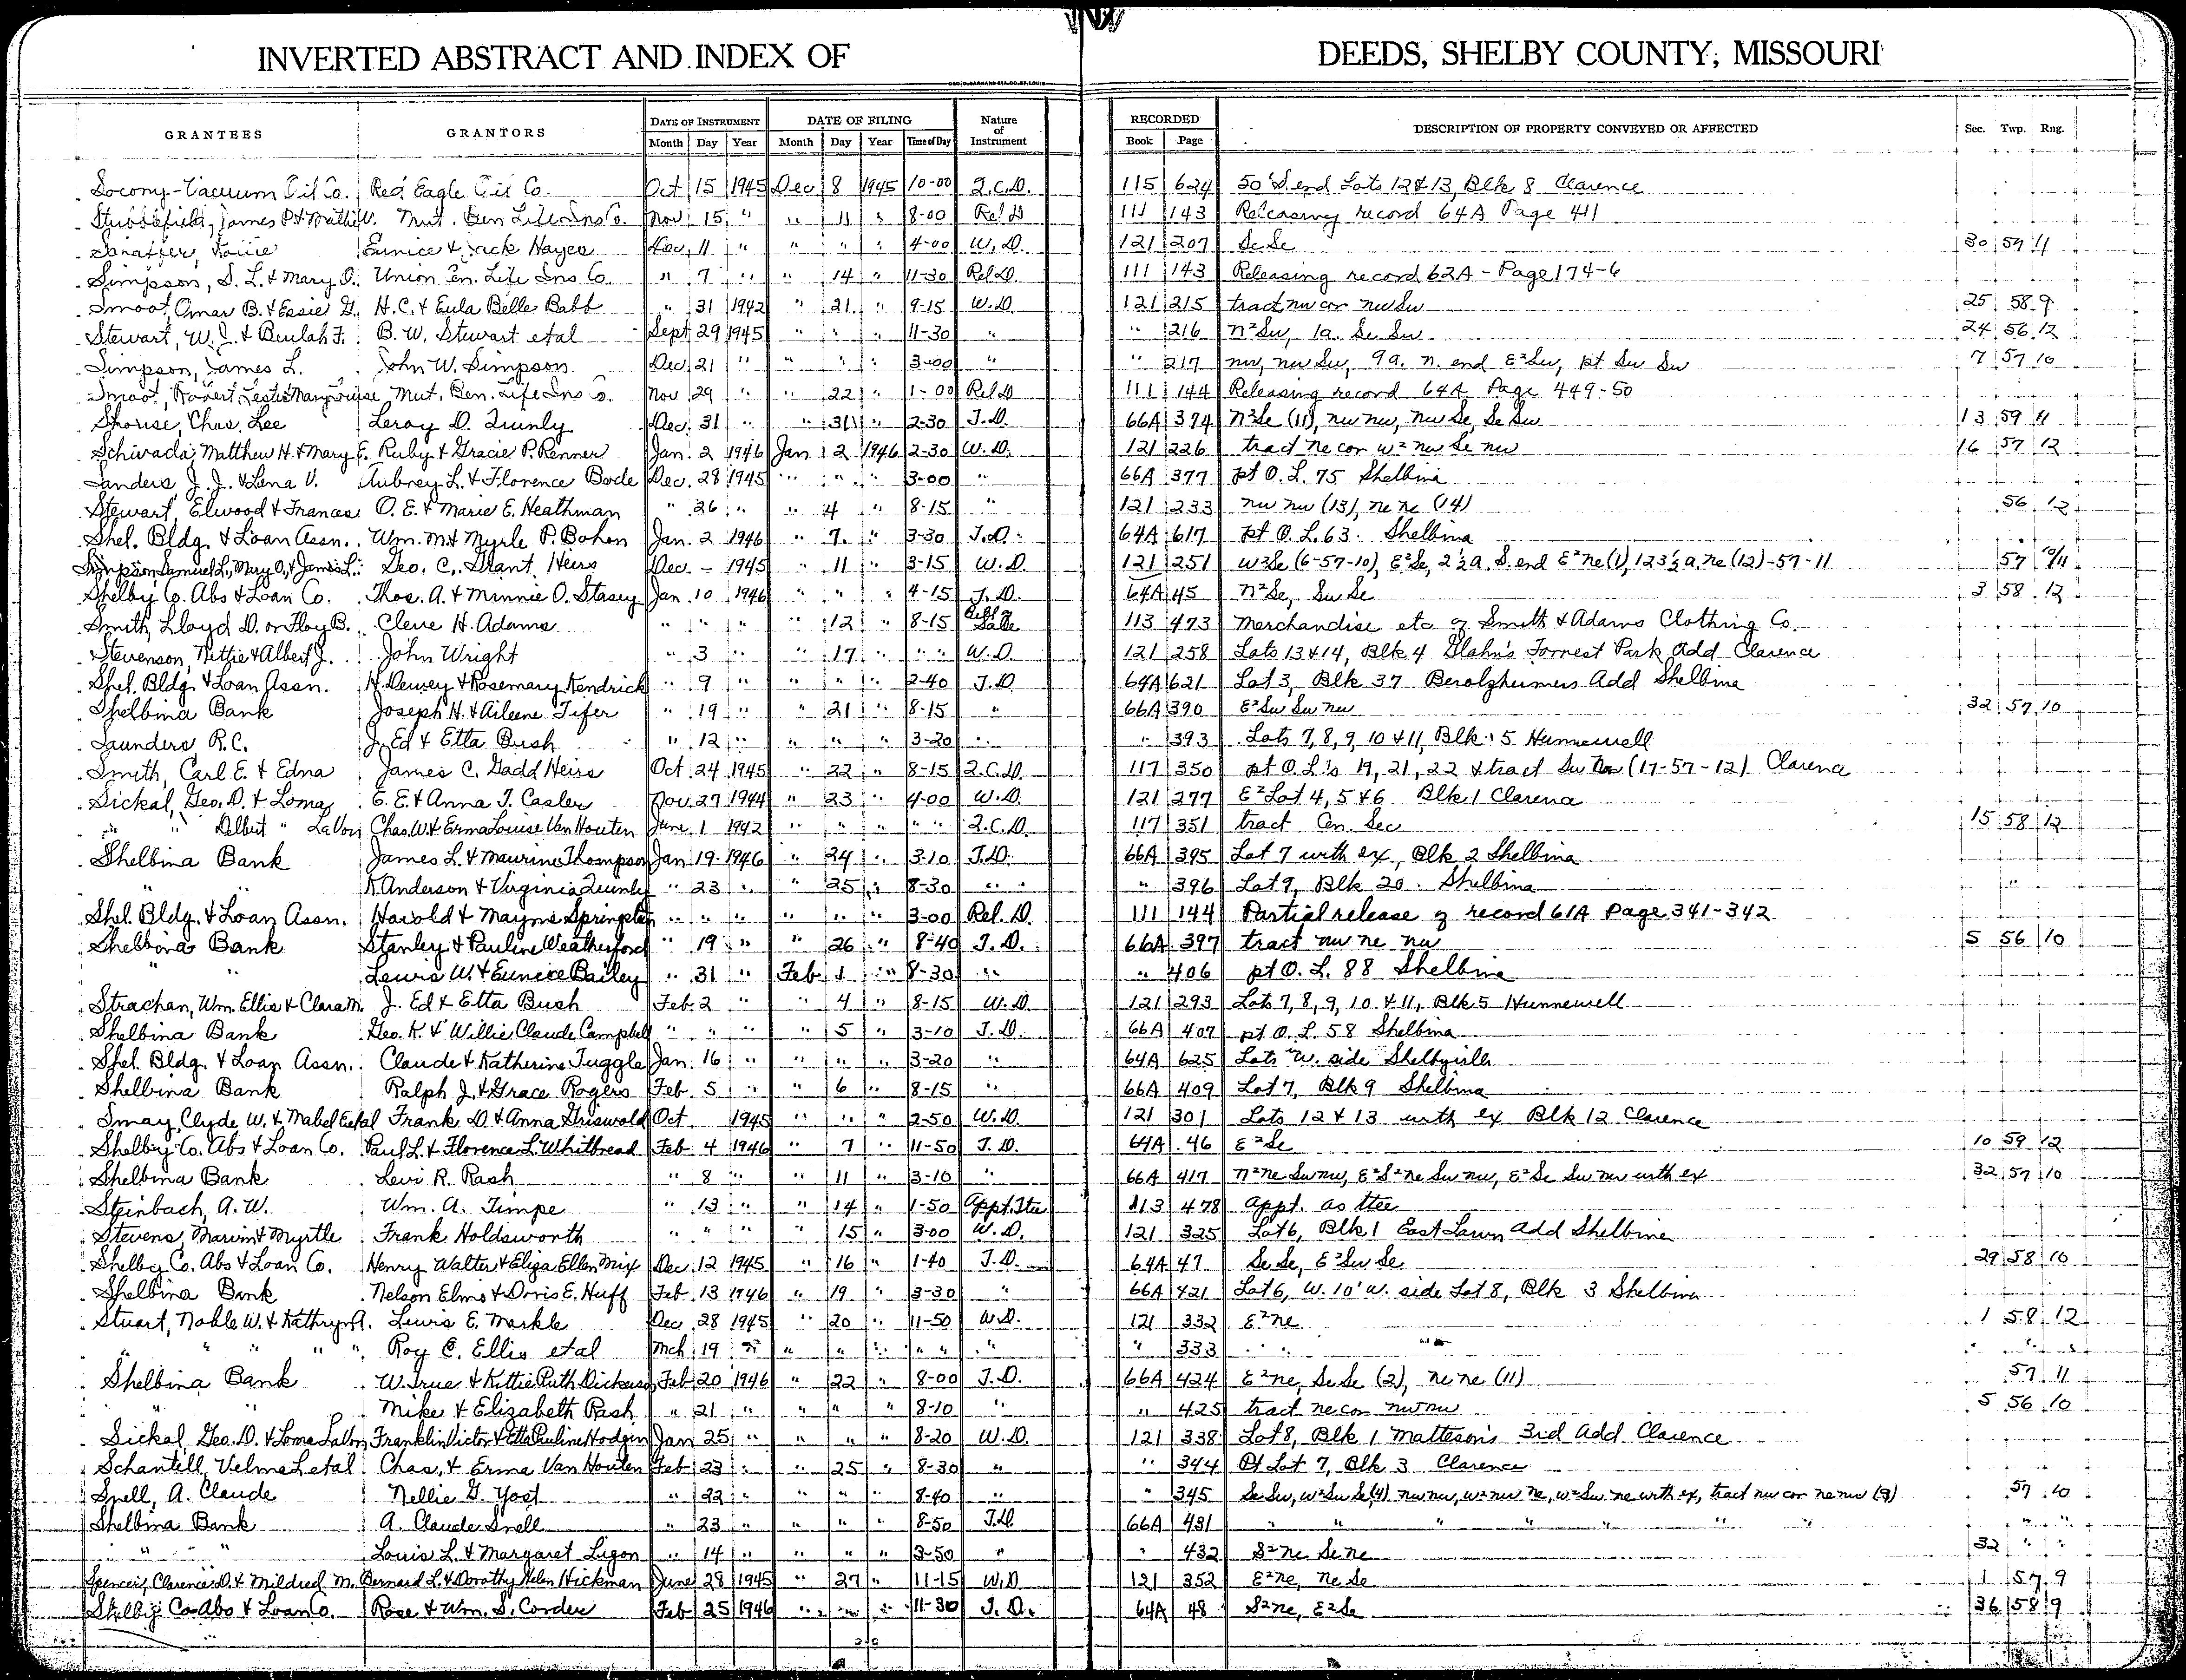 INVERTED ABSTRACT AND INDEX OF DEEDS, SHELBY COUNTY; MISSOURI
GEO. D. BARNARD STA. CO. ST. LOUIS
GRANTEES GRANTORS DATE OF INSTRUMENT DATE OF FILING Nature of Instrument RECORDED DESCRIPTION OF PROPERTY CONVEYED OR AFFECTED Sec. Twp. Rng.
Month Day Year Month Day Year Time of Day Book Page
Socony-Vacuum Oil Co. Red Eagle Oil Co. Oct 15 1945 Dec 8 1945 10-00 Q.C.D. 115 624 50' S. end Lots 12 & 13, Blk 8 Clarence
Stubblefield, James P & Mattie W. Mut. Ben. Life Ins Co. Nov 15 " " 11 " 8-00 Rel D 111 143 Releasing record 64A Page 411
Shaffer, Eunice & Jack Hayes Dec 11 " " " " 4-00 W.D. 121 207 Se Se 30 59 11
Simpson, S. L. & Mary O. Union Cen. Life Ins Co. " 7 " " 14 " 11-30 Rel D. 111 143 Releasing record 62A - Page 174-6
Smoot, Omar B. & Essie G. H. C. & Eula Belle Babb " 31 1942 " 21 " 9-15 W.D. 121 215 tract nw cor nw Sw 25 58 9
Stewart, W. J. & Beulah F. B. W. Stewart etal Sept 29 1945 " " " 11-30 " " 216 N² Sw, 1a. Se Sw 24 56 12
Simpson, James L. John W. Simpson Dec 21 " " " " 3-00 " " 217 nw, nw Sw, 9a. n. end E² Sw, pt Sw Sw 7 57 10
Smoot, Robert Lester Mary Louise Mut. Ben. Life Ins Co. Nov 29 " " 22 " 1-00 Rel D 111 144 Releasing record 64A Page 449-50
Shouse, Chas. Lee Leroy D. Quinly Dec. 31 " " 31 " 2-30 T.D. 66A 374 N² Se (11), nw nw, nw Se, Se Sw 13 59 11
Schwada, Matthew H. & Mary E. Ruby & Gracie P. Renner Jan. 2 1946 Jan 2 1946 2-30 W.D. 121 226 tract ne cor w² nw Se nw 16 57 12
Sanders J. J. & Lena V. Aubrey L. & Florence Bode Dec. 28 1945 " " " 3-00 " 66A 377 pt O. L. 75 Shelbina
Stewart, Elwood & Frances O. E. & Marie E. Heathman " 26 " " 4 " 8-15 " 121 233 nw nw (13), ne ne (14) 56 12
Shel. Bldg. & Loan Assn. Wm. M & Myrle P. Bohon Jan. 2 1946 " 7 " 3-30 T.D. 64A 617 pt O. L. 63. Shelbina
Simpson, Samuel L., Mary O., & James L. Geo. C. Grant Heirs Dec. - 1945 " 11 " 3-15 W.D. 121 251 w² Se (6-57-10), E² Se, 2½a. S. end E² ne (1), 123½a. ne (12)-57-11 57 10/11
Shelby Co. Abs & Loan Co. Thos. A. & Minnie O. Stasey Jan. 10 1946 " " " 4-15 T.D. 64A 45 N² Se, Sw Se 3 58 12
Smith, Lloyd D. or Floy B. Cleve H. Adams " " " " 12 " 8-15 Bill of Sale 113 473 Merchandise etc of Smith & Adams Clothing Co.
Stevenson, Nettie & Albert J. John Wright " 3 " " 17 " " " W.D. 121 258 Lots 13 & 14, Blk 4 Glahn's Forrest Park Add Clarence
Shel. Bldg & Loan Assn. H. Dewey & Rosemary Kendrick " 9 " " " " 2-40 T.D. 64A 621 Lot 3, Blk 37 Berolzheimers Add Shelbina
Shelbina Bank Joseph H. & Aileene Tifer " 19 " " 21 " 8-15 " 66A 390 E² Sw Sw nw 32 57 10
Saunders R.C. J. Ed & Etta Bush " 12 " " " " 3-20 " " 393 Lots 7, 8, 9, 10 & 11, Blk 5 Hunnewell
Smith, Carl E. & Edna James C. Gadd Heirs Oct 24 1945 " 22 " 8-15 Q.C.D. 117 350 pt O. L.'s 19, 21, 22 & tract Sw (17-57-12) Clarence
Sickal, Geo. D. & Loma E. E. & Anna T. Casler Nov 27 1944 " 23 " 4-00 W.D. 121 277 E² Lot 4, 5 & 6 Blk 1 Clarence
" " Delbert " LaVon Chas. W. & Erma Louise Van Houten June 1 1942 " " " " " Q.C.D. 117 351 tract Cen. Sec 15 58 12
Shelbina Bank James L. & Maurine Thompson Jan 19 1946 " 24 " 3-10 T.D. 66A 395 Lot 7 with ex, Blk 2 Shelbina
" " K. Anderson & Virginia Quinly " 23 " " 25 " 8-30 " " " 396 Lot 9, Blk 20. Shelbina
Shel. Bldg. & Loan Assn. Harold & Mayme " " " " " " 3-00 Rel. D. 111 144 Partial release of record 61A Page 341-342
Shelbina Bank Stanley & Pauline Weatherford " 19 " " 26 " 8-40 T.D. 66A 397 tract nw ne nw 5 56 10
" " Lewis W. & Eunice Bailey " 31 " Feb 1 " 8-30 " " 406 pt O. L. 88 Shelbina
Strachan, Wm. Ellis & Clara M. J. Ed & Etta Bush Feb. 2 " " 4 " 8-15 W.D. 121 293 Lots 7, 8, 9, 10 & 11, Blk 5 Hunnewell
Shelbina Bank Geo. K. & Willie Claude Campbell " " " " 5 " 3-10 T.D. 66A 407 pt O. L. 58 Shelbina
Shel. Bldg. & Loan Assn. Claude & Katherine Tuggle Jan 16 " " " " 3-20 " 64A 625 Lots "W. side" Shelbyville
Shelbina Bank Ralph J. & Grace Rogers Feb 5 " " 6 " 8-15 " 66A 409 Lot 7, Blk 9 Shelbina
Smay, Clyde W. & Mabel Etal Frank D. & Anna Griswold Oct 1945 " " " 2-50 W.D. 121 301 Lots 12 & 13 with ex Blk 12 Clarence
Shelby Co. Abs & Loan Co. Paul L. & Florence L. Whitbread Feb 4 1946 " 7 " 11-50 T.D. 64A 46 E² Se 10 59 12
Shelbina Bank Levi R. Rash " 8 " " 11 " 3-10 " 66A 417 N² ne Sw nw, E² S² ne Sw nw, E² Se Sw nw with ex 32 57 10
Steinbach, A. W. Wm. A. Timpe " 13 " " 14 " 1-50 Appt. Ttee 113 478 Appt. as ttee
Stevens, Marvin & Myrtle Frank Holdsworth " " " " 15 " 3-00 W.D. 121 325 Lot 6, Blk 1 East Lawn Add Shelbina
Shelby Co. Abs & Loan Co. Henry Walter & Eliza Ellen Mix Dec 12 1945 " 16 " 1-40 T.D. 64A 47 Se Se, E² Sw Se 29 58 10
Shelbina Bank Nelson Elmo & Doris E. Huff Feb 13 1946 " 19 " 3-30 " 66A 421 Lot 6, W. 10' W. side Lot 8, Blk 3 Shelbina
Stuart, Noble W. & Kathryn A. Lewis E. Markle Dec 28 1945 " 20 " 11-50 W.D. 121 332 E² ne 1 58 12
" " " " Roy C. Ellis etal Mch 19 " " " " " " " " 333 " " " " "
Shelbina Bank W. True & Kittie Ruth Dickerson Feb 20 1946 " 22 " 8-00 T.D. 66A 424 E² ne, Se Se (2), ne ne (11) 57 11
" " Mike & Elizabeth Rash " 21 " " " " 8-10 " " 425 tract ne cor nw nw 5 56 10
Sickal, Geo. D. & Loma LaVon Franklin Victor & Etta Pauline Hodgin Jan 25 " " " " 8-20 W.D. 121 338 Lot 8, Blk 1 Matteson's 3rd Add Clarence
Schantell, Velma L etal Chas. & Erma Van Houten Feb 23 " " 25 " 8-30 " " 344 Pt Lot 7, Blk 3 Clarence
Snell, A. Claude Nellie G. Yost " 22 " " " " 8-40 " " 345 Se Sw, w² Sw Se (4) nw nw, w² nw ne, w² Sw ne with ex, tract nw cor ne nw (9) 57 10
Shelbina Bank A. Claude Snell " 23 " " " " 8-50 T.D. 66A 431 " " " " " " " " "
" " Louis L. & Margaret Ligon " 14 " " " " 3-50 " " 432 S² ne Se ne 32 " "
Spencer, Clarence D. & Mildred M. Bernard L. & Dorothy Helen Hickman June 28 1945 " 27 " 11-15 W.D. 121 352 E² ne, ne Se 1 57 9
Shelby Co Abs & Loan Co. Rose & Wm. S. Corder Feb 25 1946 " " " 11-30 T.D. 64A 48 S² ne, E² Se 36 58 9